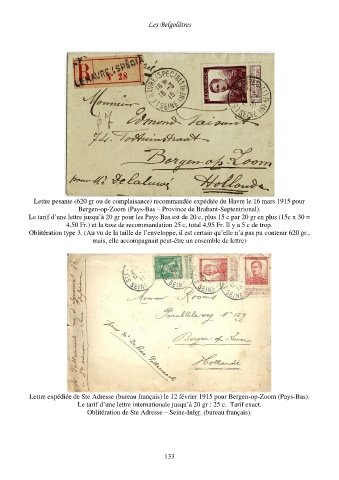 Les Belgolâtres
R
LE HAVRE (SPÉCIAL)
N° 28
Monsieur
Edmond
74.
Bergen-op-Zoom
pour Mr Delaluwe Hollande
Lettre pesante (620 gr ou de complaisance) recommandée expédiée du Havre le 16 mars 1915 pour
Bergen-op-Zoom (Pays-Bas – Province de Brabant-Septentrional).
Le tarif d’une lettre jusqu’à 20 gr pour les Pays-Bas est de 20 c. plus 15 c par 20 gr en plus (15c x 30 =
4,50 Fr.) et la taxe de recommandation 25 c, total 4,95 Fr. Il y a 5 c de trop.
Oblitération type 3. (Au vu de la taille de l’enveloppe, il est certain qu’elle n’a pas pu contenir 620 gr.,
mais, elle accompagnait peut-être un ensemble de lettre)
Monsieur Rooms
Parallelweg N° 159
Bergen op Zoom
Hollande
Lettre expédiée de Ste Adresse (bureau français) le 12 février 1915 pour Bergen-op-Zoom (Pays-Bas).
Le tarif d’une lettre internationale jusqu’à 20 gr : 25 c. Tarif exact.
Oblitération de Ste Adresse – Seine-Infer. (bureau français).
133